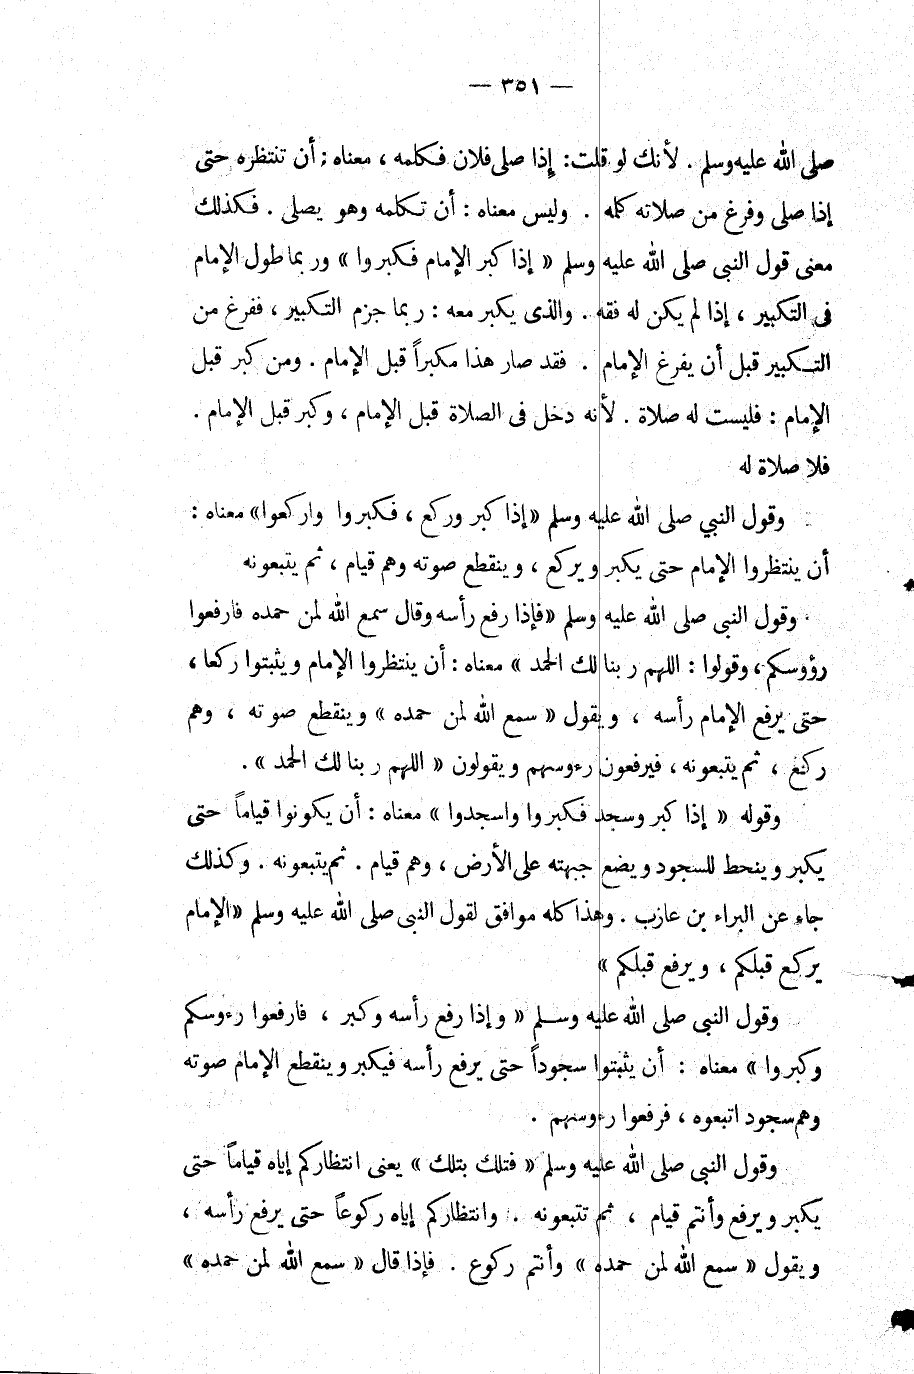 — ٣٥١ —
صلى الله عليه وسلم . لأنك لو قلت: إذا صلى فلان فكلمه ، معناه : أن تنتظره حتى
إذا صلى وفرغ من صلاته كله . وليس معناه : أن تكلمه وهو يصلى . فكذلك
معنى قول النبى صلى الله عليه وسلم « إذا كبر الإمام فكبروا » وربما طول الإمام
فى التكبير ، إذا لم يكن له فقه . والذى يكبر معه : ربما جزم التكبير ، ففرغ من
التكبير قبل أن يفرغ الإمام . فقد صار هذا مكبراً قبل الإمام . ومن كبر قبل
الإمام : فليست له صلاة . لأنه دخل فى الصلاة قبل الإمام ، وكبر قبل الإمام .
فلا صلاة له
وقول النبي صلى الله عليه وسلم «إذا كبر وركع ، فكبروا واركعوا» معناه :
أن ينتظروا الإمام حتى يكبر ويركع ، وينقطع صوته وهم قيام ، ثم يتبعونه
وقول النبى صلى الله عليه وسلم «فإذا رفع رأسه وقال سمع الله لمن حمده فارفعوا
رؤوسكم ، وقولوا : اللهم ربنا لك الحمد » معناه : أن ينتظروا الإمام ويثبتوا ركعا ،
حتى يرفع الإمام رأسه ، ويقول « سمع الله لمن حمده » وينقطع صوته ، وهم
ركع ، ثم يتبعونه ، فيرفعون رءوسهم ويقولون « اللهم ربنا لك الحمد » .
وقوله « إذا كبر وسجد فكبروا واسجدوا » معناه : أن يكونوا قياماً حتى
يكبر وينحط للسجود ويضع جبهته على الأرض ، وهم قيام . ثم يتبعونه . وكذلك
جاء عن البراء بن عازب . وهذا كله موافق لقول النبى صلى الله عليه وسلم «الإمام
يركع قبلكم ، ويرفع قبلكم »
وقول النبى صلى الله عليه وسلم « وإذا رفع رأسه وكبر ، فارفعوا رءوسكم
وكبروا » معناه : أن يثبتوا سجوداً حتى يرفع رأسه فيكبر وينقطع الإمام صوته
وهم سجود اتبعوه ، فرفعوا رءوسهم .
وقول النبى صلى الله عليه وسلم « فتلك بتلك » يعنى انتظاركم إياه قياماً حتى
يكبر ويرفع وأنتم قيام ، ثم تتبعونه . وانتظاركم إياه ركوعاً حتى يرفع رأسه ،
ويقول « سمع الله لمن حمده » وأنتم ركوع . فإذا قال « سمع الله لمن حمده »